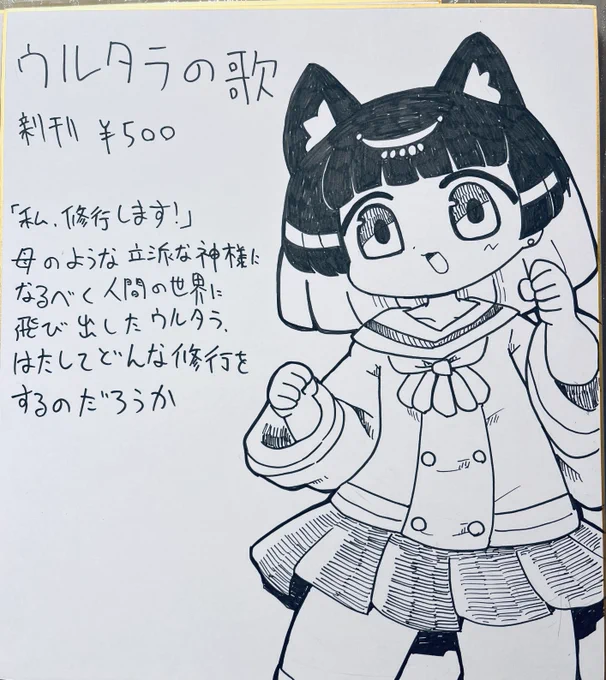 ウルタラの歌
新刊 ¥500
「私、修行します!」
母のような立派な神様に
なるべく人間の世界に
飛び出したウルタラ、
はたしてどんな修行を
するのだろうか